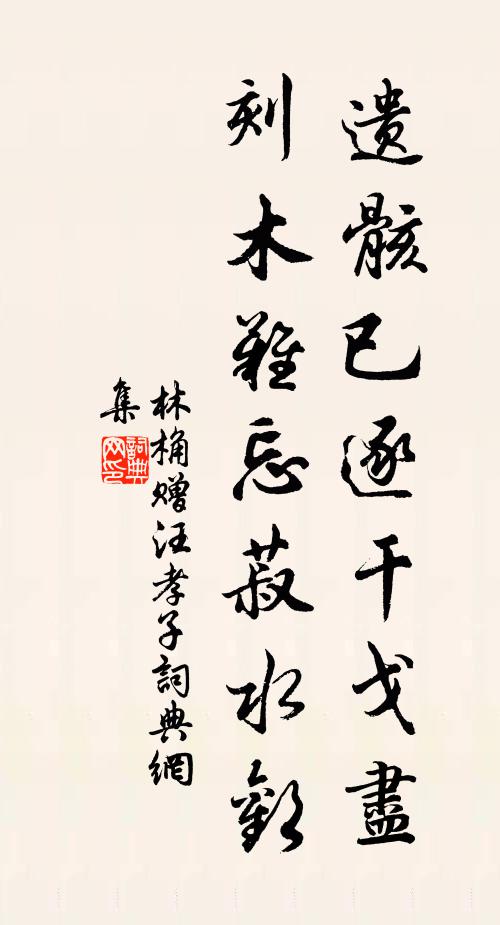 遺骸已逐干戈盡
刻木難忘菽水歡
林桷贈汪孝子詞典網
集
詞典
网印